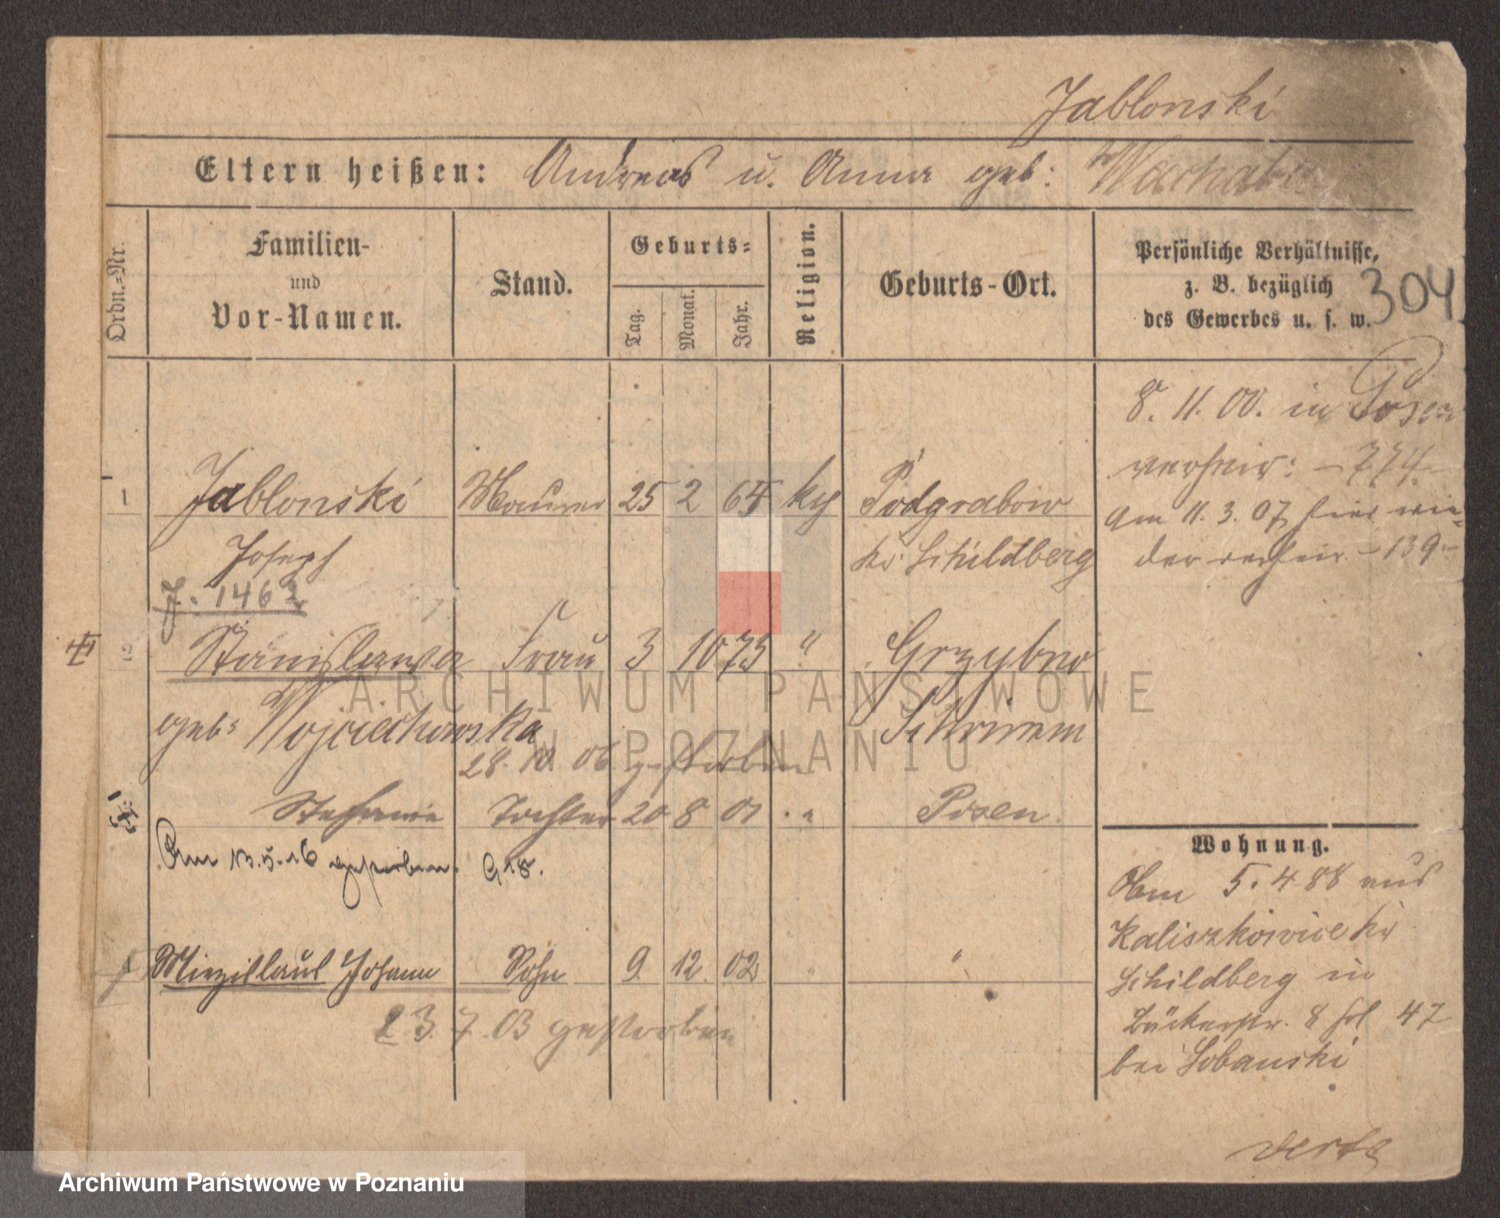 Jablonski
Eltern heißen: Andreas u. Anna geb:
Ordn.-Nr.
Familien- und Vor-Namen.
Stand.
Geburts-
Tag. Monat. Jahr.
Religion.
Geburts-Ort.
Persönliche Verhältnisse, z. B. bezüglich des Gewerbes u. s. w.
304
8. 11. 00. in Posen
verheir: -774-
Am 11. 3. 07 hier wie-
der verheir. -139-
1 Jablonski Maurer 25 2 65 Podgrabow
Joseph Kr Schildberg
J. 1462
2 Stanislawa Frau 3 10 75 " Grzybno
geb: Wojciechowska Schrimm
28. 10. 06 gestorben
Stefanie Tochter 20 8 01 " Posen
Am 13. 5. 16 gestorben.
Miezislaus Johann Sohn 9 12. 02 " "
23. 7. 03 gestorben
Wohnung.
5. 4 88 aus
Kaliszkowice Kr
Schildberg in
Bäckerstr. 8 47
bei Lobanski
verte
ARCHIWUM PAŃSTWOWE
W POZNANIU
Archiwum Państwowe w Poznaniu